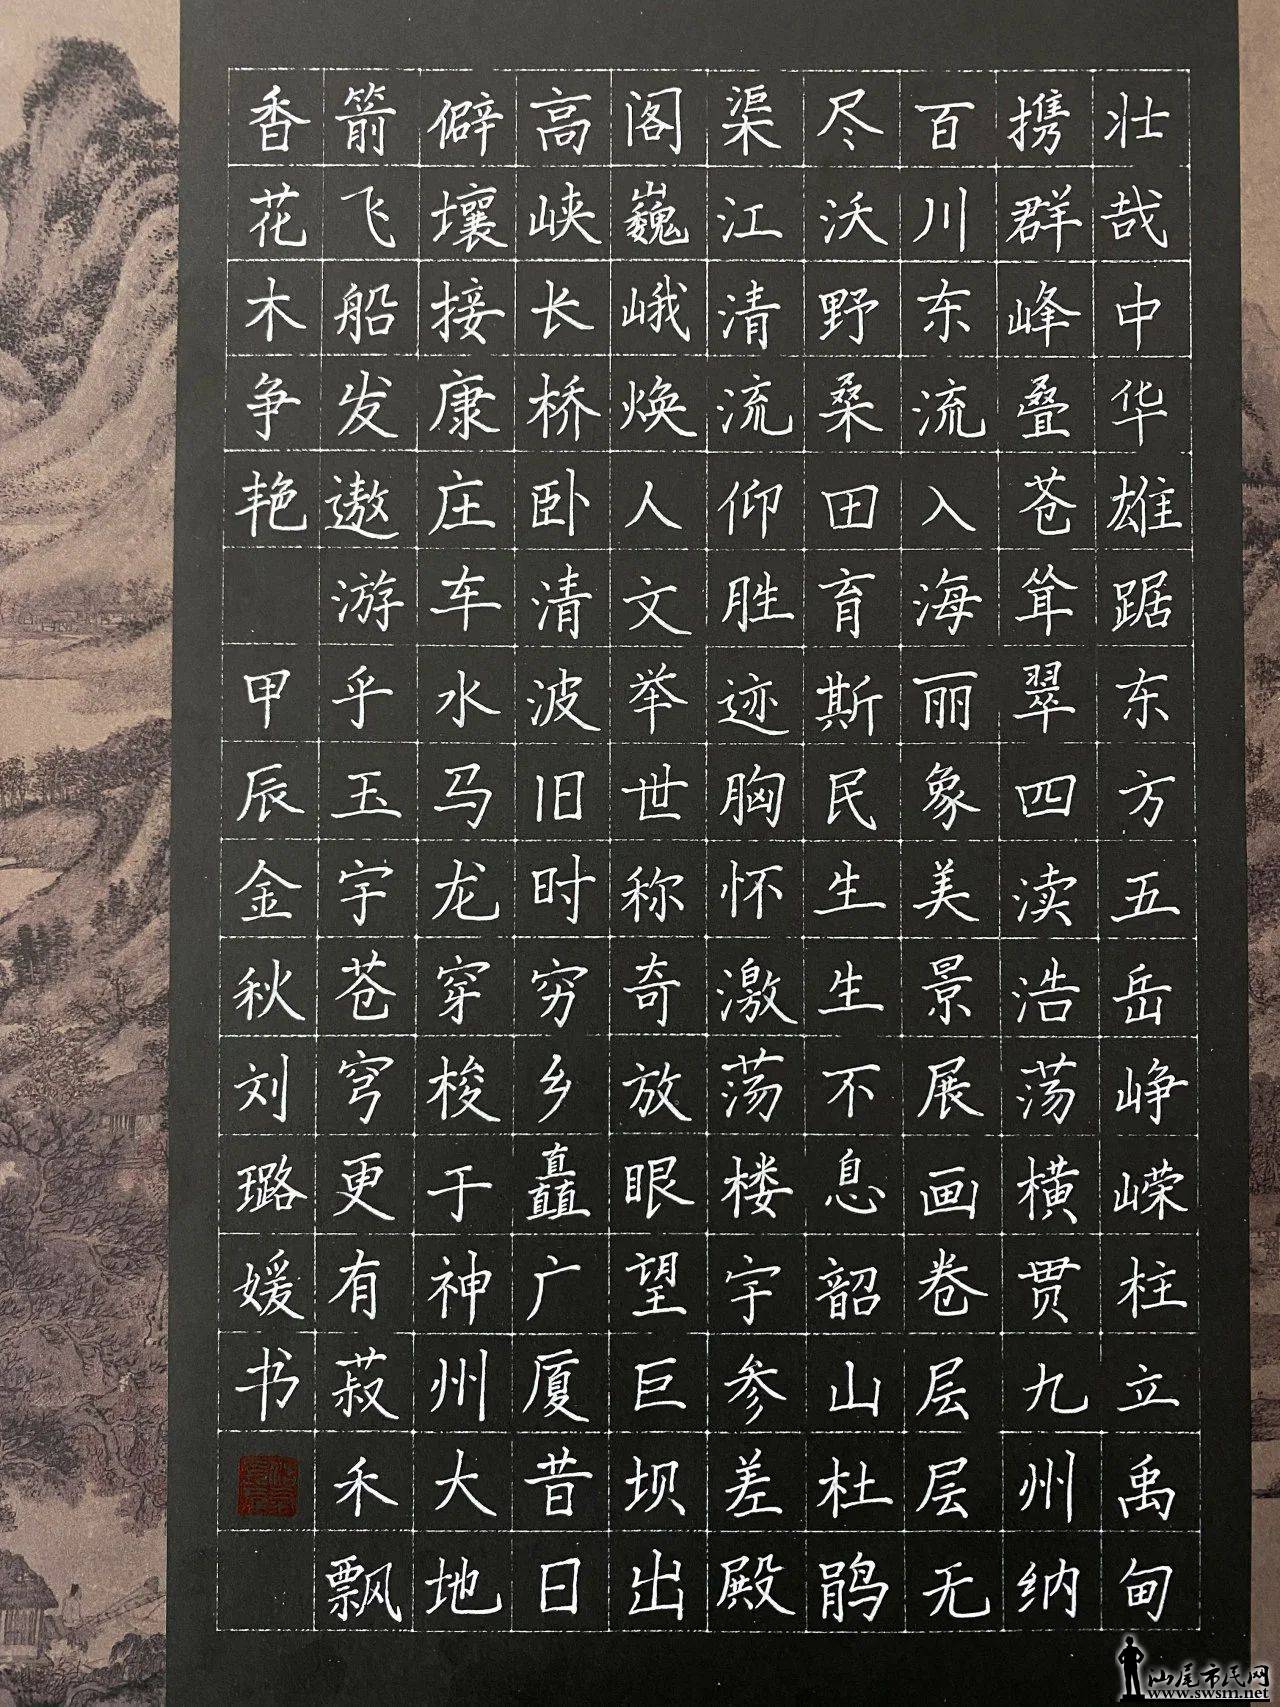 壮哉中华雄踞东方五岳峥嵘柱立禹甸
携群峰叠苍耸翠四渎浩荡横贯九州纳
百川东流入海丽象美景展画卷层层无
尽沃野桑田育斯民生生不息韶山杜鹃
渠江清流仰胜迹胸怀激荡楼宇参差殿
阁巍峨焕人文举世称奇放眼望巨坝出
高峡长桥卧清波旧时穷乡矗广厦昔日
僻壤接康庄车水马龙穿梭于神州大地
箭飞船发遨游乎玉宇苍穹更有菽禾飘
香花木争艳 甲辰金秋刘璐媛书
汕尾市民网
www.swsm.net